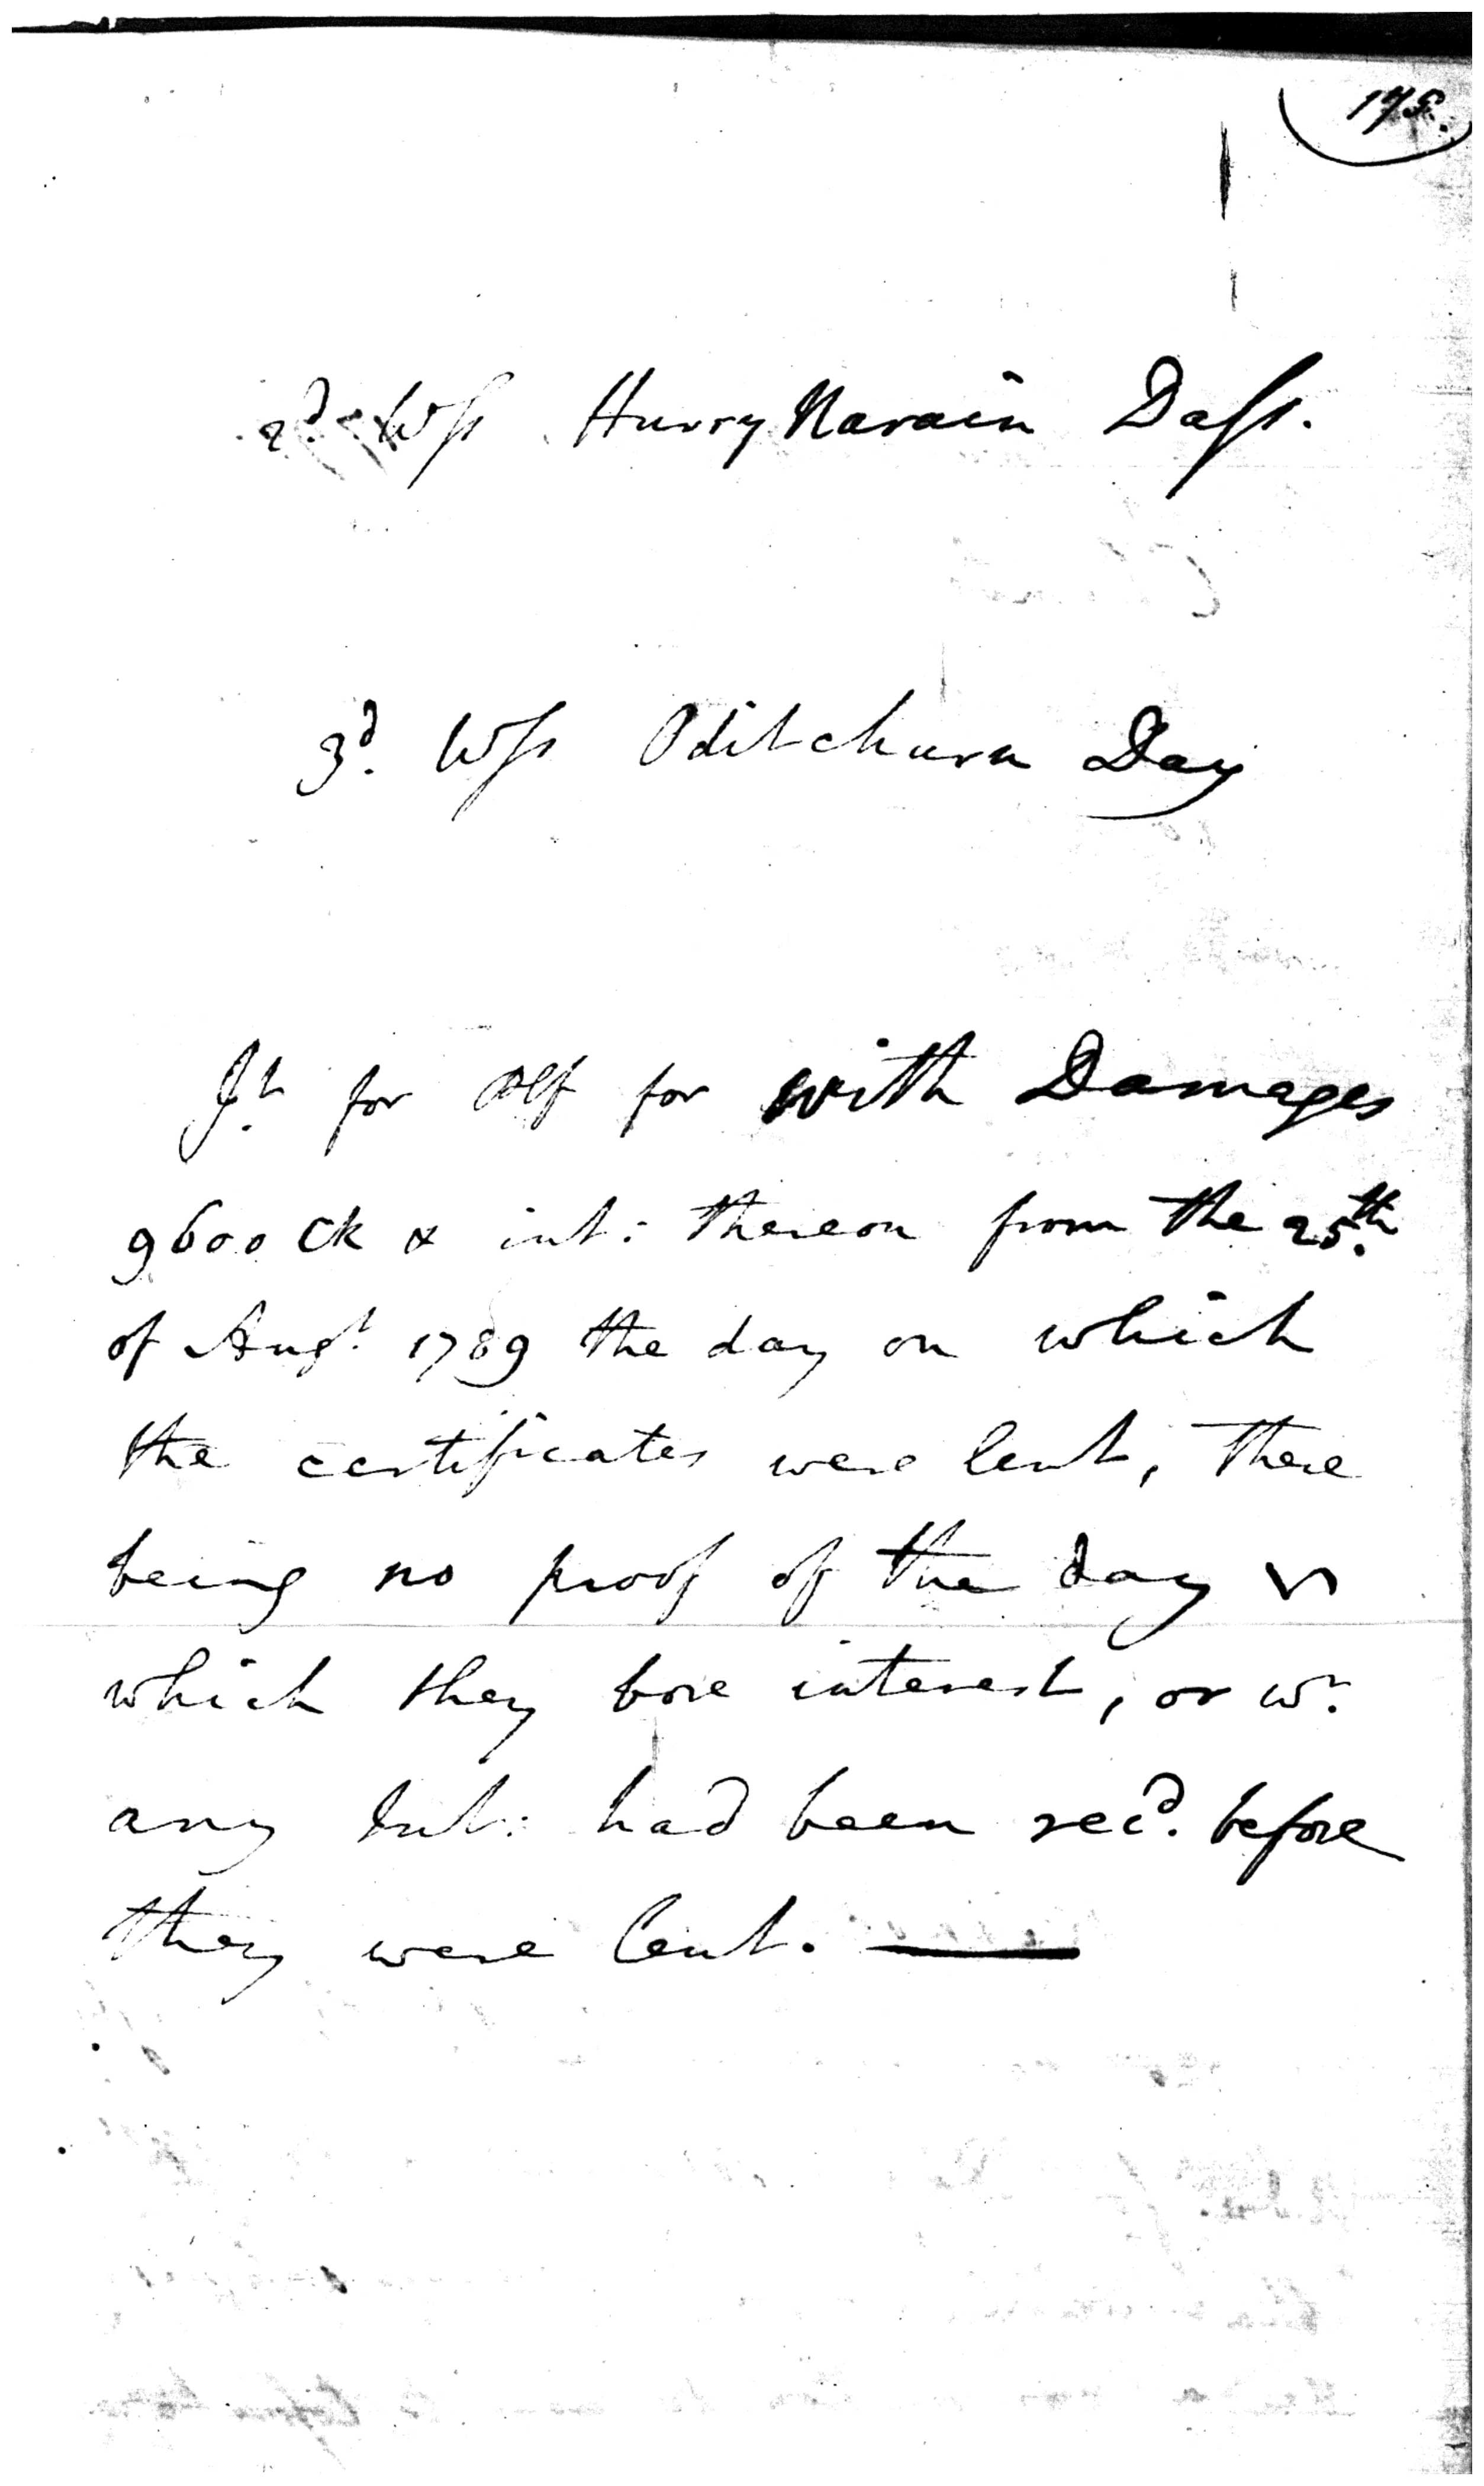 175.
2d. Wss Hurry Narain Dass.
3d. Wss Oditchurn Day
Jt. for Plf for with Damages
9600 CR & int: thereon from the 25.th
of Augt. 1789 the day on which
the certificates were lent, there
being no proof of the day
which they bore interest, or wr.
any Int: had been recd. before
they were lent.